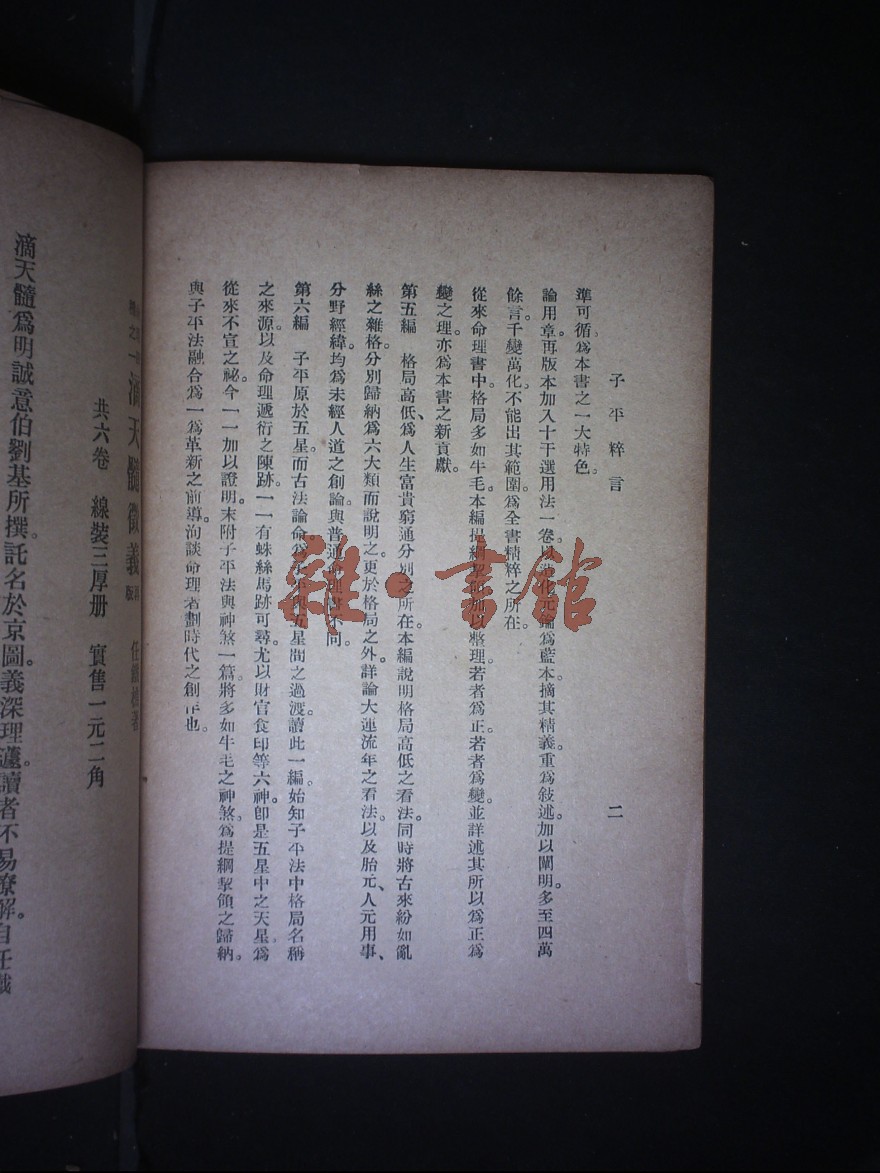 子平粹言
二
準可循。爲本書之一大特色。
論用章再版本加入十干選用法一卷。以造化元鑰爲藍本。摘其精義。重爲敍述。加以闡明。多至四萬
餘言。千變萬化。不能出其範圍。爲全書精粹之所在。
從來命理書中。格局多如牛毛。本編提綱挈領。加以整理。若者爲正。若者爲變。並詳述其所以爲正爲
變之理。亦爲本書之新貢獻。
第五編 格局高低、爲人生富貴窮通分別之所在。本編說明格局高低之看法。同時將古來紛如亂
絲之雜格。分別歸納爲六大類而說明之。更於格局之外。詳論大運流年之看法。以及胎元、人元用事、
分野經緯。均爲未經人道之創論。與普通命理書不同。
第六編 子平原於五星。而古法論命。爲子平與五星間之過渡。讀此一編。始知子平法中格局名稱
之來源。以及命理遞衍之陳跡。一一有蛛絲馬跡可尋。尤以財官食印等六神。卽是五星中之天星。爲
從來不宣之祕。今一一加以證明。末附子平法與神煞一篇。將多如牛毛之神煞。爲提綱挈領之歸納。
與子平法融合爲一。爲革新之前導。洵談命理者劃時代之創作也。
之一 滴天髓徵義 再版 任鐵樵著
共六卷 線裝三厚册 實售一元二角
滴天髓爲明誠意伯劉基所撰。託名於京圖。義深理邃。讀者不易瞭解。自任鐵
雜·書館